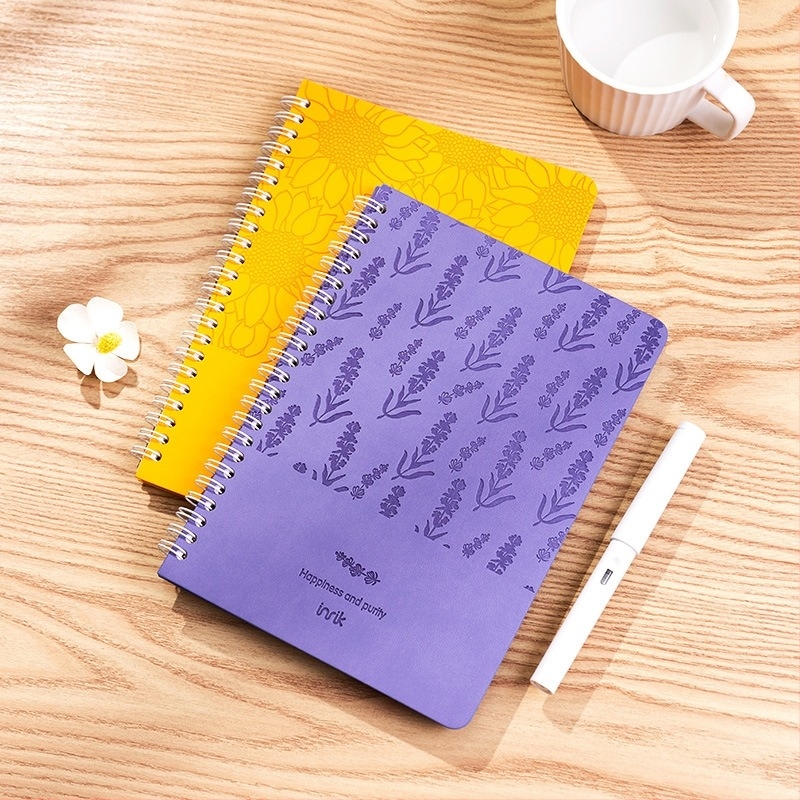 Happiness and purity
inrik